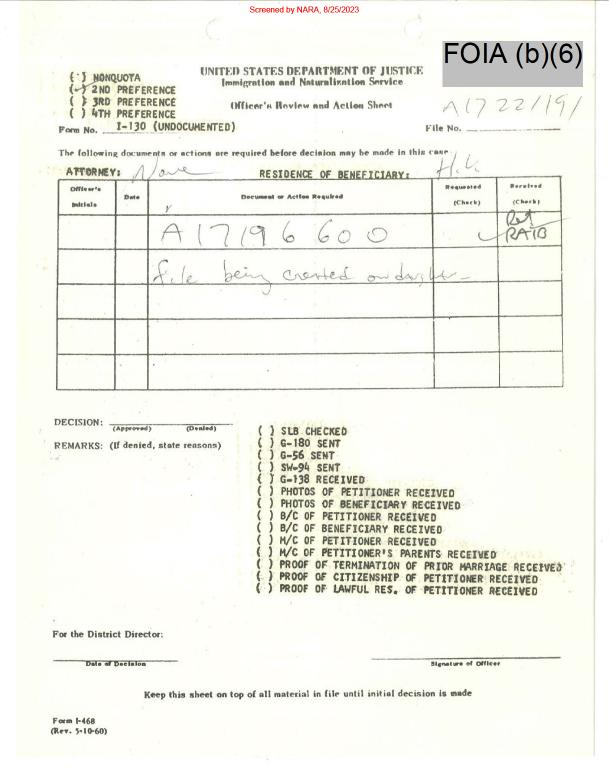 Screened by NARA, 8/25/2023
FOIA (b)(6)
( ) NONQUOTA
(✓) 2ND PREFERENCE
( ) 3RD PREFERENCE
( ) 4TH PREFERENCE
Form No. I-130 (UNDOCUMENTED)
UNITED STATES DEPARTMENT OF JUSTICE
Immigration and Naturalization Service
Officer's Review and Action Sheet
A1722/191
File No.
The following documents or actions are required before decision may be made in this case
ATTORNEY: None RESIDENCE OF BENEFICIARY: H.K.
Officer's Initials Date Document or Action Required Requested (Check) Received (Check)
A17196600 ✓ Ret RAIB
file being created on daughter
DECISION:
(Approved) (Denied)
REMARKS: (If denied, state reasons)
( ) SLB CHECKED
( ) G-180 SENT
( ) G-56 SENT
( ) SW-94 SENT
( ) G-138 RECEIVED
( ) PHOTOS OF PETITIONER RECEIVED
( ) PHOTOS OF BENEFICIARY RECEIVED
( ) B/C OF PETITIONER RECEIVED
( ) B/C OF BENEFICIARY RECEIVED
( ) M/C OF PETITIONER RECEIVED
( ) M/C OF PETITIONER'S PARENTS RECEIVED
( ) PROOF OF TERMINATION OF PRIOR MARRIAGE RECEIVED
( ) PROOF OF CITIZENSHIP OF PETITIONER RECEIVED
( ) PROOF OF LAWFUL RES. OF PETITIONER RECEIVED
For the District Director:
Date of Decision
Signature of Officer
Keep this sheet on top of all material in file until initial decision is made
Form I-468
(Rev. 5-10-60)